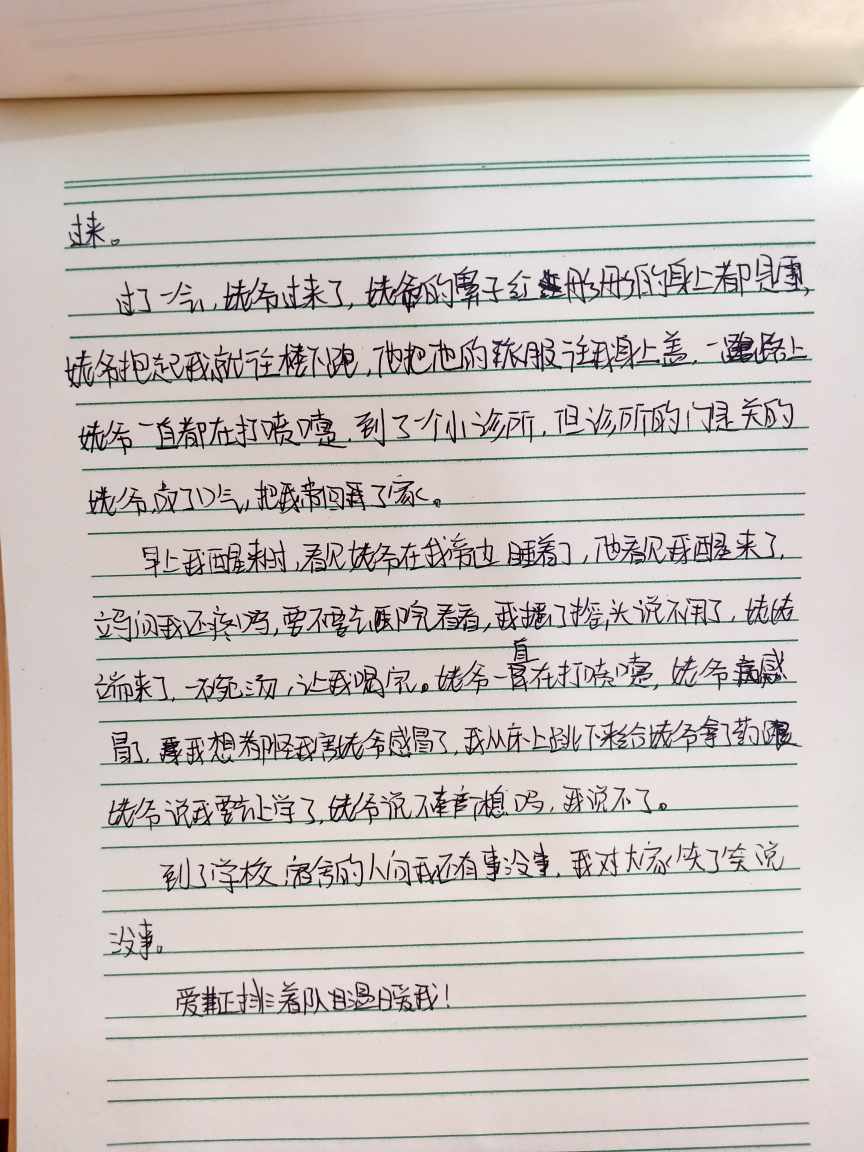 过来。
过了一会,姥爷过来了,姥爷的鼻子红彤彤的身上都是雪,
姥爷抱起我就往楼下跑,他把他的衣服往我身上盖,一路上
姥爷一直都在打喷嚏,到了一个小诊所,但诊所的门是关的
姥爷叹了口气,把我带回了家。
早上我醒来时,看见姥爷在我旁边睡着了,他看见我醒来了,
立马问我还疼吗,要不要去医院看看,我摇了摇头说不用了,姥姥
端来了一碗汤,让我喝完。姥爷一直在打喷嚏,姥爷感
冒了,我想都怪我害姥爷感冒了,我从床上跳下来给姥爷拿了药跟
姥爷说我要去上学了,姥爷说不在休息吗,我说不了。
到了学校,宿舍的人问我还有事没事,我对大家笑了笑说
没事。
爱正排着队温暖我!